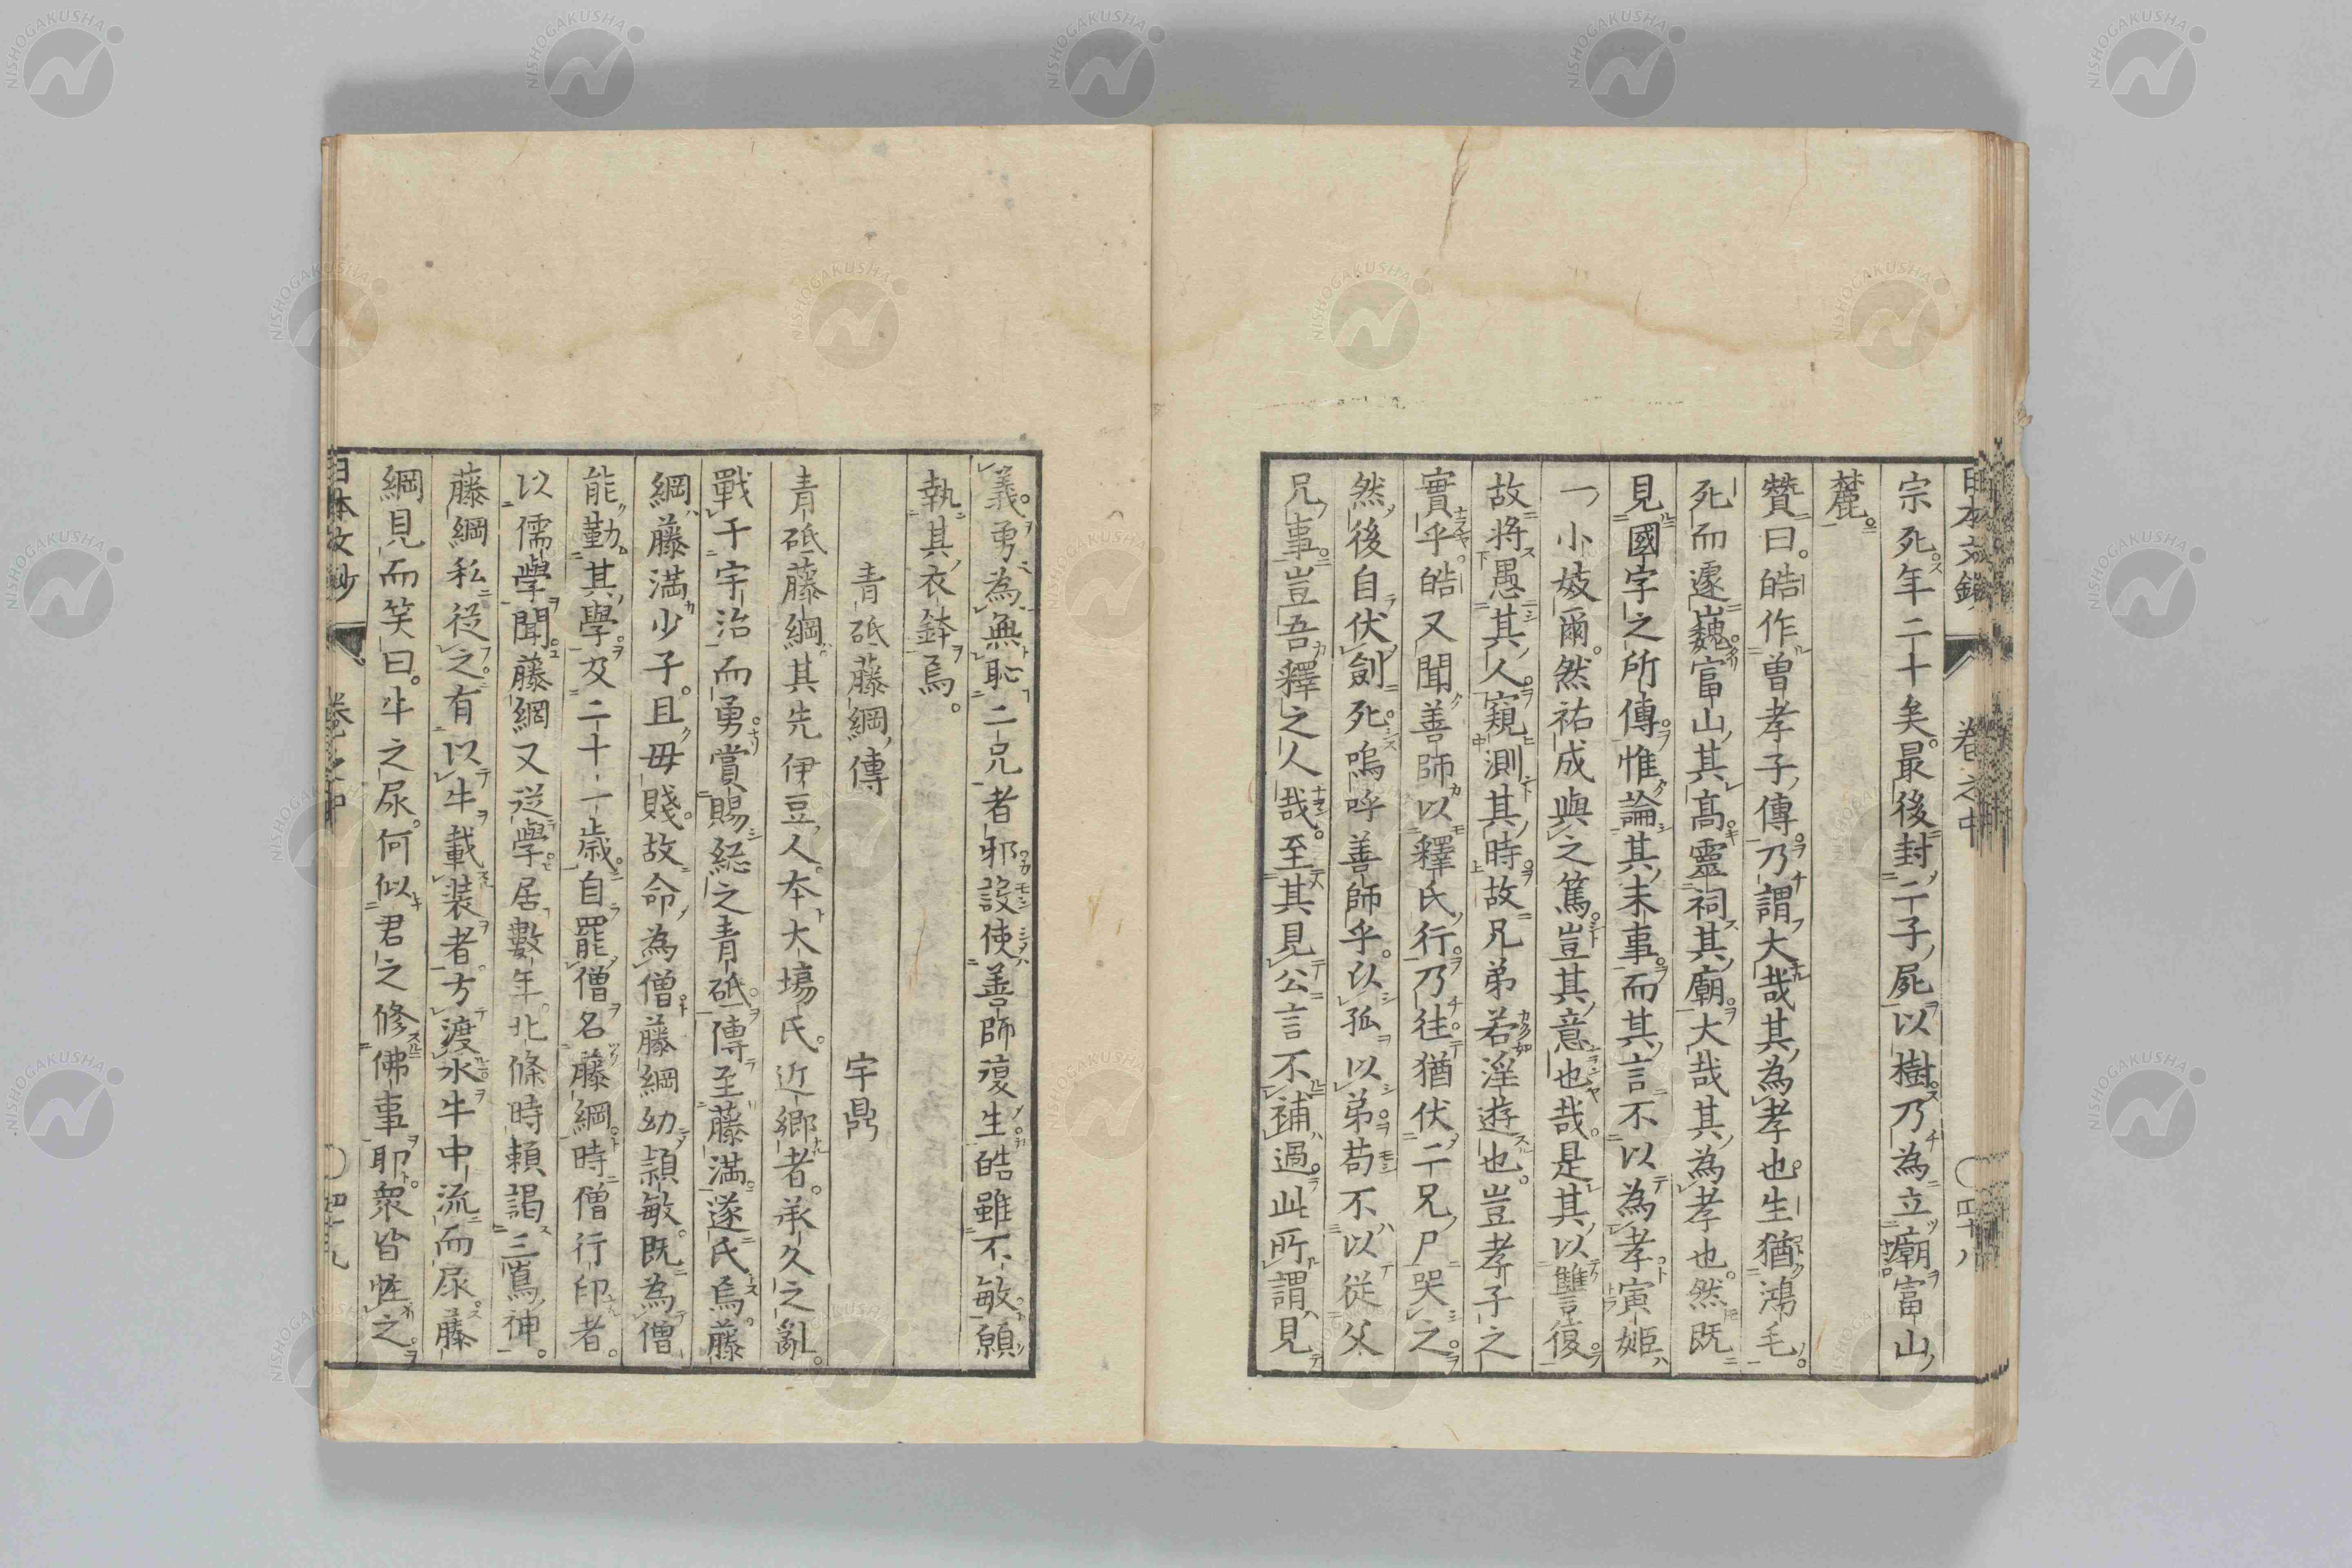 宗死年二十矣。最後封二子屍以樹乃為立廟富山
麓。
贊曰。皓作曽孝子傳。乃謂大哉其為孝也生猶鴻毛。
死而遂巍富山其髙靈祠其廟。大哉其為孝也。然既
見國字之所傳。惟論其末事。而其言不以為孝寅姫
一小妓爾。然祐成與之篤。豈其意也哉。是其以讐復。
故将愚其人。窺測其時。故兄弟若淫遊也。豈孝子之
實乎。皓又聞善師以釋氏行。乃往。猶伏二兄尸哭之。
然後自伏劍死。嗚呼善師乎。以孤以弟。苟不以従父
兄事。豈吾釋之人哉。至其見公言不補過。此所謂見
義。勇為無恥二兄者邪。設使善師復生。皓雖不敏。願
執其衣鉢焉。
青砥藤綱傳 宇鼎
青砥藤綱其先伊豆人。本大塲氏。近郷者。承久之亂。
戰于宇治而勇。賞賜総之青砥。傳至藤満。遂氏焉。藤
綱藤満少子。且毋賤。故命為僧。藤綱幼頴敏。既為僧
能勤其學。及二十一歳。自罷僧名藤綱。時僧行印者。
以儒學聞。藤綱又従學。居數年。北條時頼謁三嶌神。
藤綱私従之。有以牛載装者。方渡水牛中流而尿。藤
綱見而笑曰。牛之尿。何似君之修佛事耶。衆皆恠之。
日本文鈔 卷之中 四十八
NISHOGAKUSHA